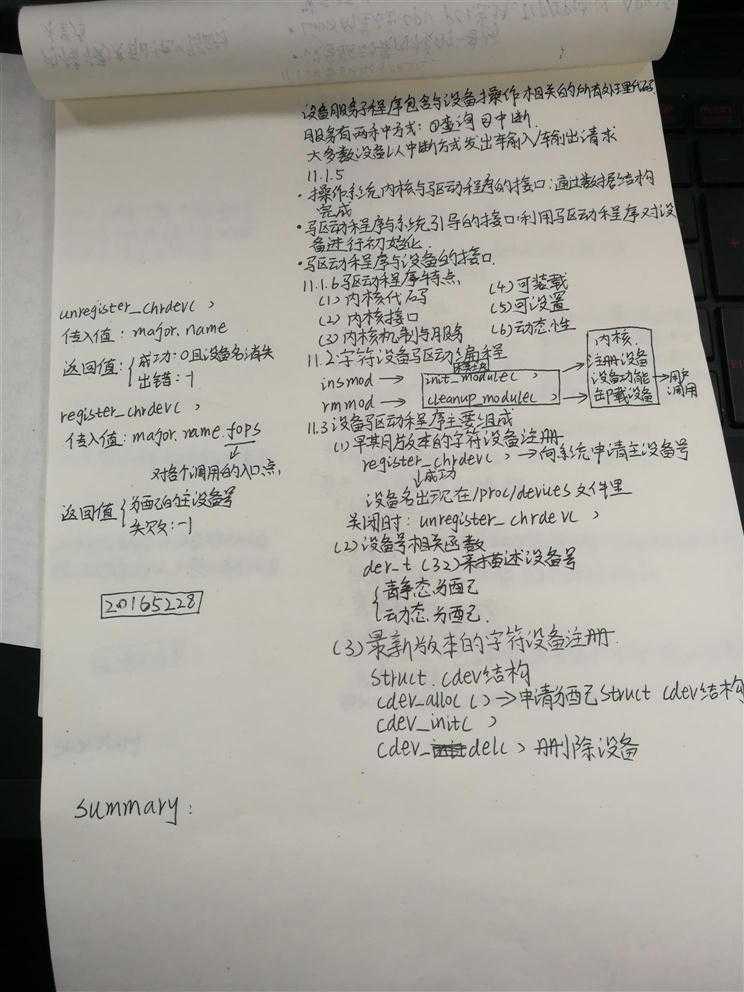 设备服务子程序包含与设备操作相关的所有处理代码
服务有两种方式：①查询②中断
大多数设备以中断方式发出车输入/车输出请求
11.1.5
·操作系统内核与驱动程序的接口：通过数据结构
完成
·驱动程序与系统引导的接口：利用驱动程序对设
备进行初始化
·驱动程序与设备的接口
11.1.6驱动程序特点
(1)内核代码
(2)内核接口
(3)内核机制与服务
(4)可装载
(5)可设置
(6)动态性
11.2字符设备驱动编程
insmod → init_module()
rmmod → cleanup_module()
内核
注册设备
设备功能
卸载设备
→用户
调用
11.3设备驱动程序主要组成
(1)早期版本的字符设备注册
register_chrdev() →向系统申请主设备号
↓成功
设备名出现在/proc/devices文件里
关闭时：unregister_chrdev()
(2)设备号相关函数
der_t(32)来描述设备号
{静态分配
动态分配
(3)最新版本的字符设备注册
struct.cdev结构
cdev_alloc()→申请分配struct cdev结构
cdev_init()
cdev_del()删除设备
unregister_chrdev()
传入值：major.name
返回值：{成功：0且设备名消失
出错：-1
register_chrdev()
传入值：major.name.fops
↓
对各个调用的入口点，
返回值{分配的主设备号
失败：-1
20165228
summary：